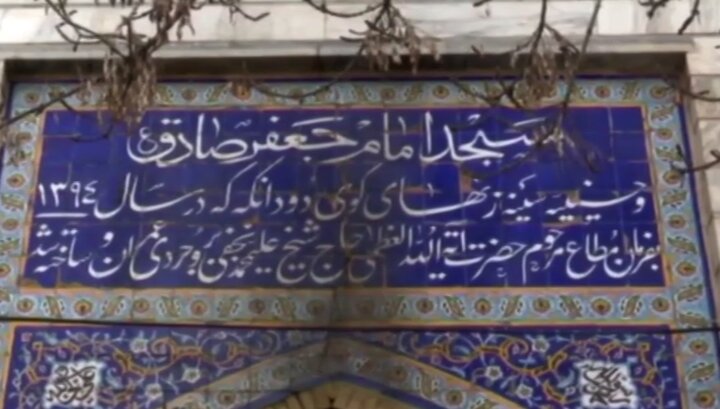 مسجد امام جعفر صادق ع
و حسینیه سینه زنهای کوی دودانگه که در سال ۱۳۹٤
بفرمان مطاع مرحوم حضرت آیة الله العظمی حاج شیخ علیمحمد نجفی بروجردی و ساخته شد